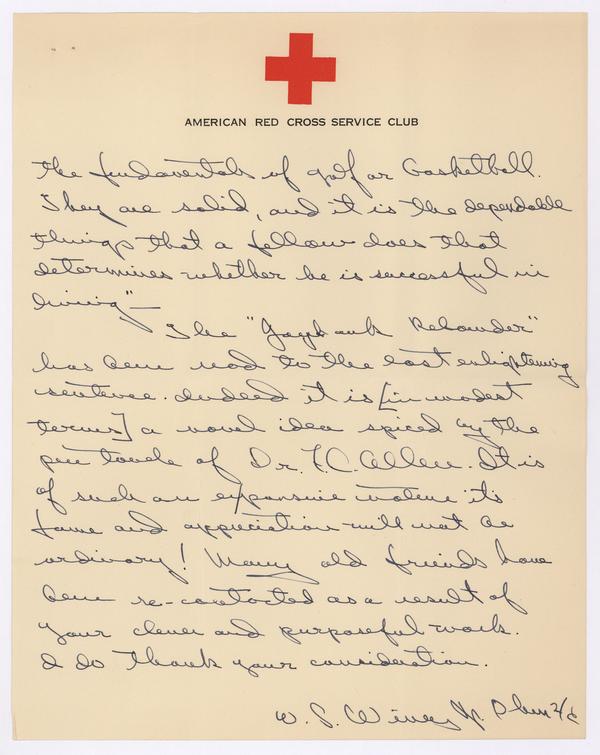 AMERICAN RED CROSS SERVICE CLUB
the fundamentals of golf or basketball.
They are solid, and it is the dependable
things that a fellow does that
determines whether he is successful in
living"—
The "Jayhawk Rebounder"
has been read to the last enlightening
sentence. Indeed it is [in modest
terms] a novel idea spiced by the
pen touch of Dr. F.C. Allen. It is
of such an expansive nature its
fame and appreciation will not be
ordinary! Many old friends have
been re-contacted as a result of
your clever and purposeful work.
I do thank your consideration.
W. S.